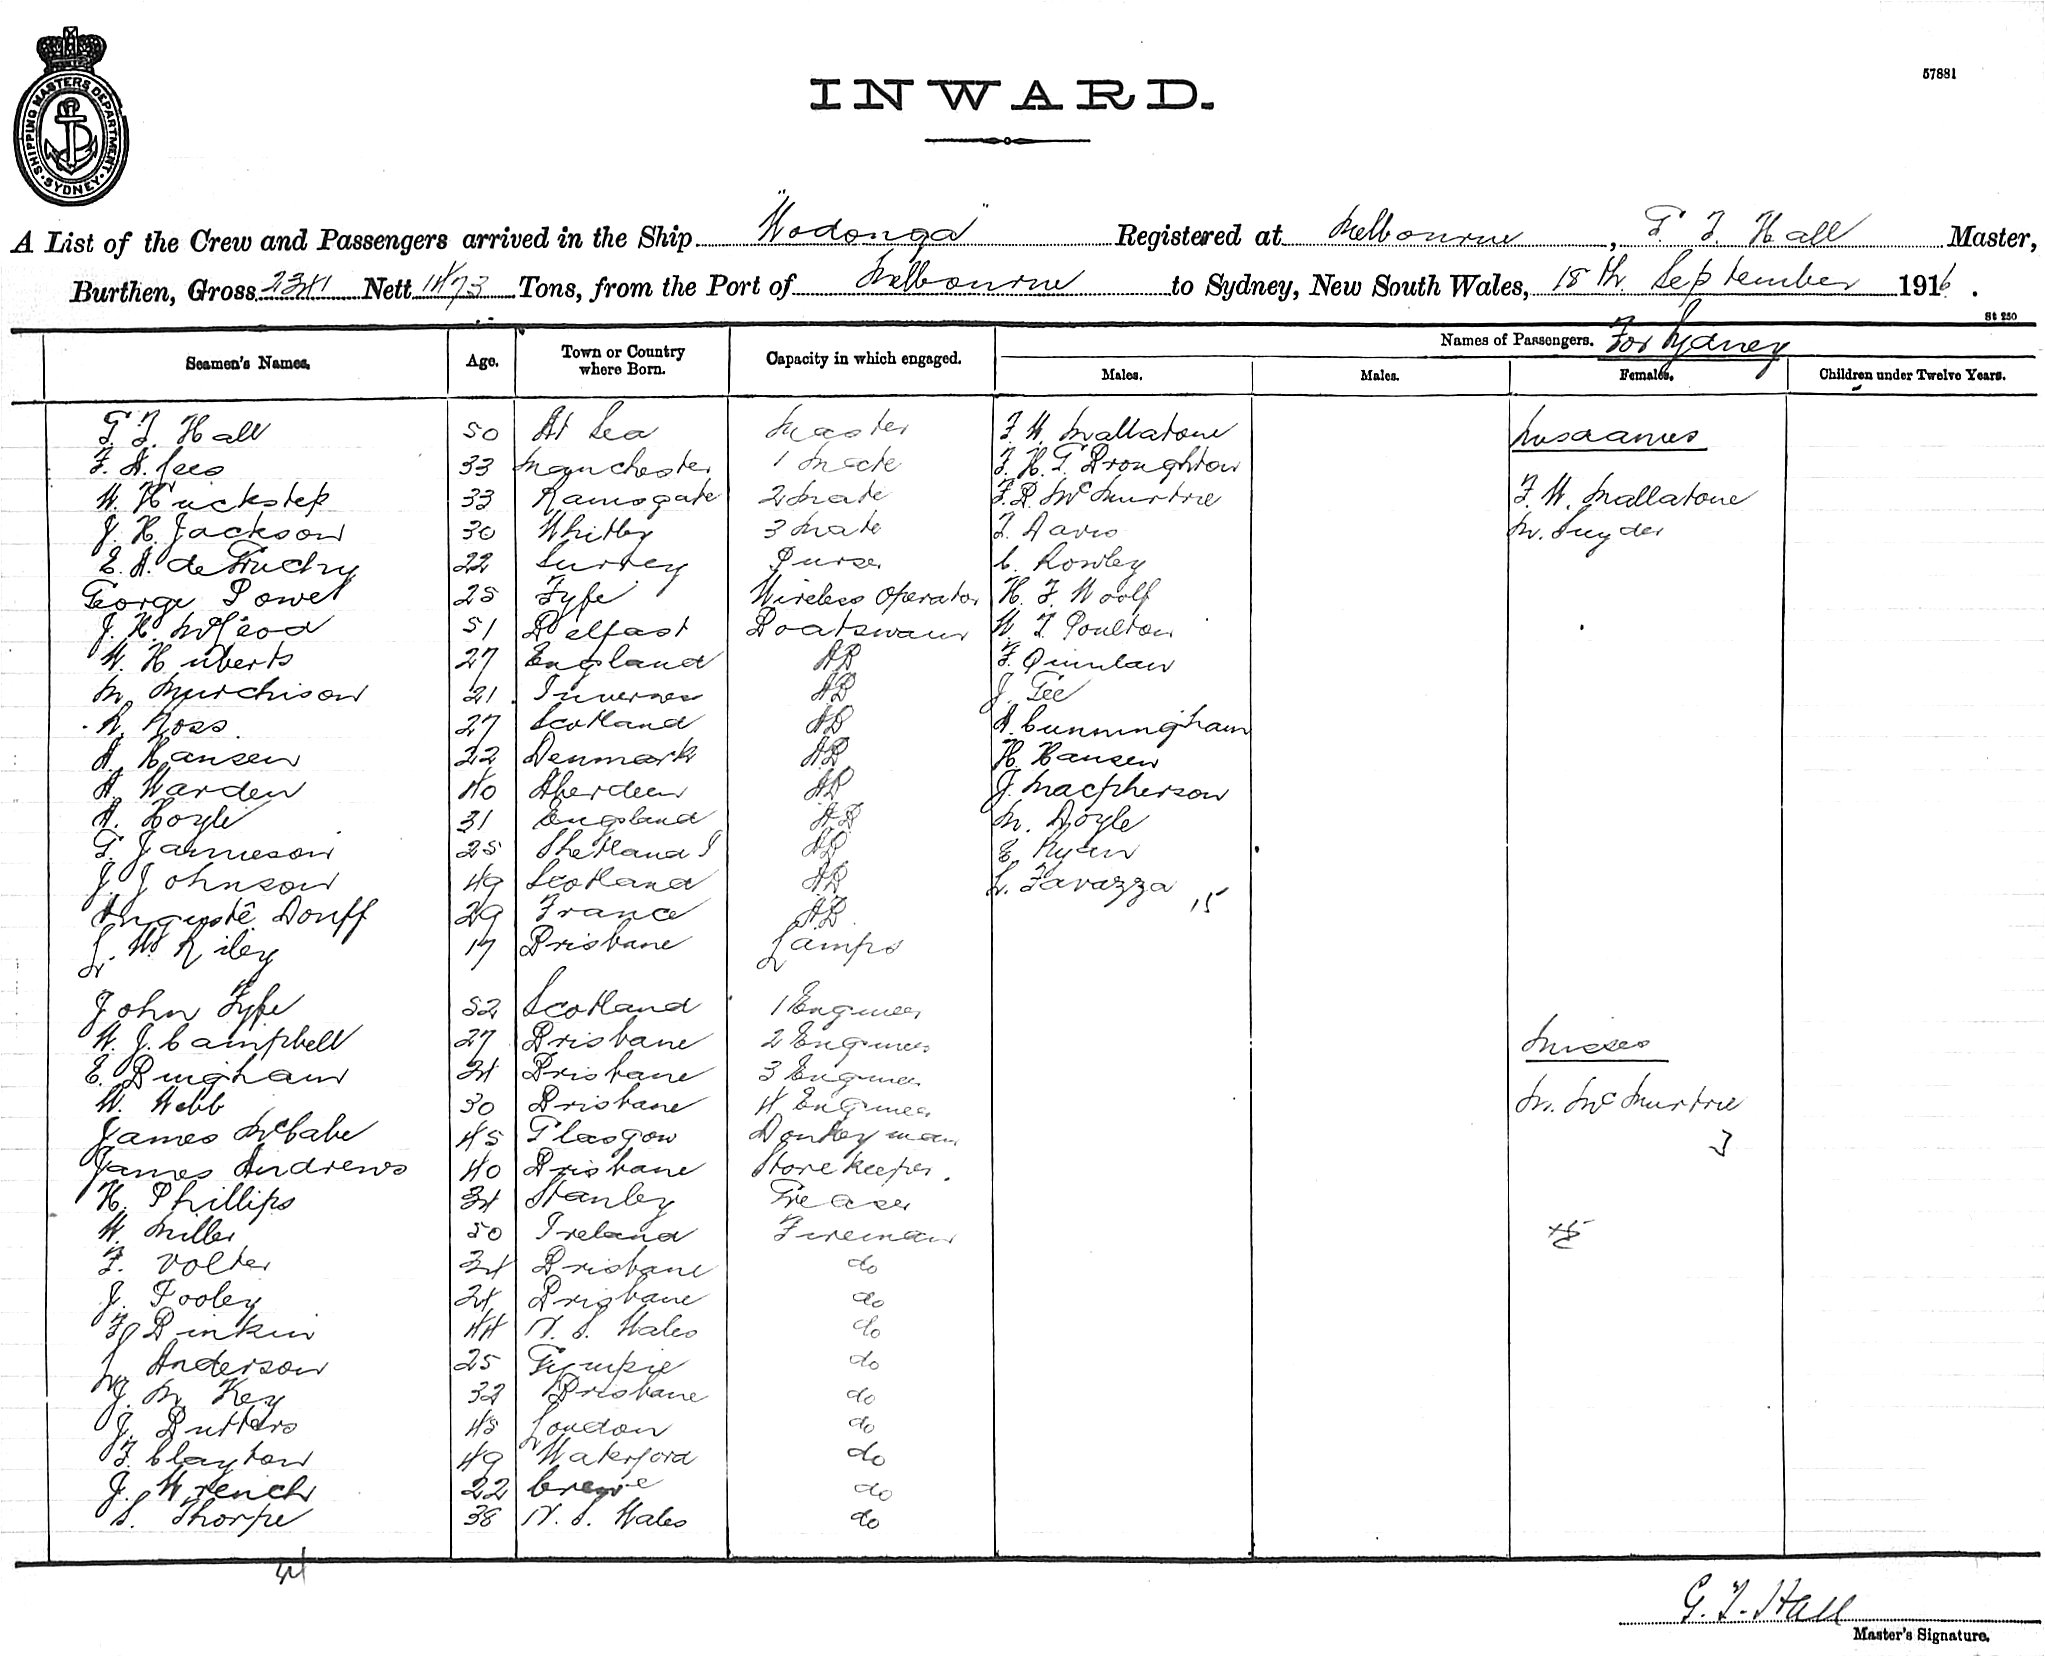 SHIPPING MASTERS DEPARTMENT. SYDNEY.
57881
INWARD.
A List of the Crew and Passengers arrived in the Ship "Wodonga" Registered at Melbourne, G. T. Hall Master,
Burthen, Gross 2341 Nett 1473 Tons, from the Port of Melbourne to Sydney, New South Wales, 18th September 1916.
St 250
Names of Passengers. For Sydney
Seamen's Names. Age. Town or Country where Born. Capacity in which engaged. Males. Males. Females. Children under Twelve Years.
G. T. Hall 50 At Sea Master F. W. Mallatone Mesdames
F. A. Lees 33 Manchester 1 Mate F. H. G. Broughton
W. Huckstep 33 Ramsgate 2 Mate F. B. McMurtrie F. W. Mallatone
J. H. Jackson 30 Whitby 3 Mate T. Davis M. Snyder
E. A. de Fruchy 22 Surrey Purser C. Rowley
George Powel 25 Fyfe Wireless Operator H. F. Woolf
J. H. McLeod 51 Belfast Boatswain W. T. Poulton
W. Huberts 27 England AB F. Quinlan
M. Murchison 21 Inverness AB J. Gee
R. Ross 27 Scotland AB A. Cunningham
A. Hansen 22 Denmark AB H. Hansen
A. Warden 40 Aberdeen AB J. Macpherson
A. Hoyle 31 England AB M. Doyle
G. Jamieson 25 Shetland I AB E. Ryan
J. Johnson 49 Scotland AB L. Favazza
Auguste Douff 29 France AB 15
L. W. Riley 17 Brisbane Lamps
John Fyfe 52 Scotland 1 Engineer
W. J. Campbell 27 Brisbane 2 Engineer Misses
E. Bingham 24 Brisbane 3 Engineer
W. Webb 30 Brisbane 4 Engineer M. McMurtrie
James McCabe 45 Glasgow Donkeyman 3
James Andrews 40 Brisbane Storekeeper.
H. Phillips 34 Stanley Greaser
W. Miller 50 Ireland Fireman
F. Volter 34 Brisbane do
J. Tooley 24 Brisbane do
F. Binkin 44 N. S. Wales do
L. Anderson 25 Gympie do
J. M. Key 32 Brisbane do
J. Butters 45 London do
F. Clayton 49 Waterford do
J. Wrench 22 Crewe do
S. Thorpe 38 N. S. Wales do
34
G. T. Hall
Master's Signature.